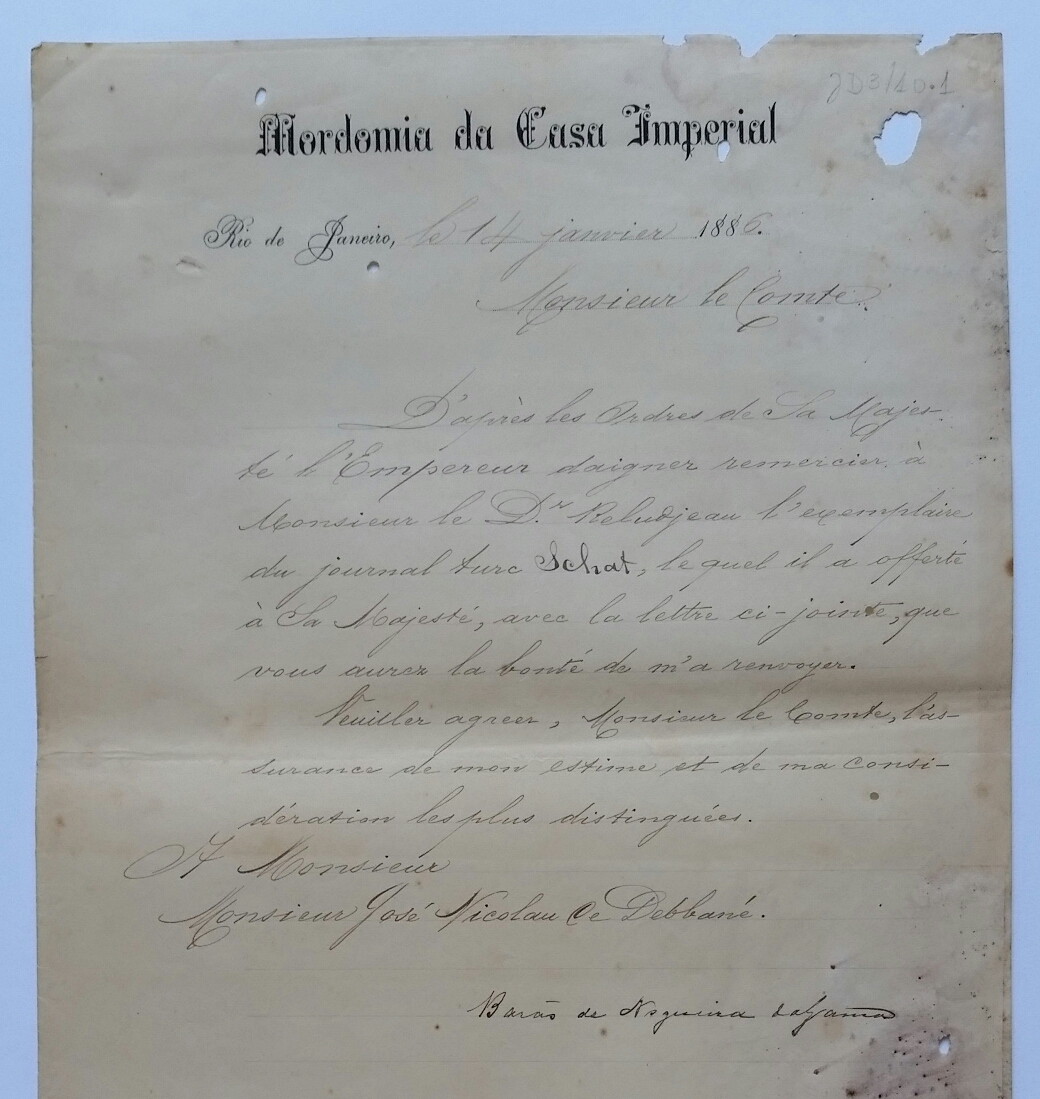 JD3/10.1
Mordomia da Casa Imperial
Rio de Janeiro, le 14 janvier 1886.
Monsieur le Comte.
D'après les Ordres de Sa Majes-
té l'Empereur daigner remercier à
Monsieur le D.r Keludjeau l'exemplaire
du journal turc Schat, le quel il a offerté
à Sa Majesté, avec la lettre ci-jointe, que
vous aurez la bonté de m'a renvoyer.
Veuiller agreer, Monsieur le Comte, l'as-
surance de mon estime et de ma consi-
dération les plus distinguées.
A Monsieur
Monsieur José Nicolau de Debbané.
Barão de Nogueira da Gama